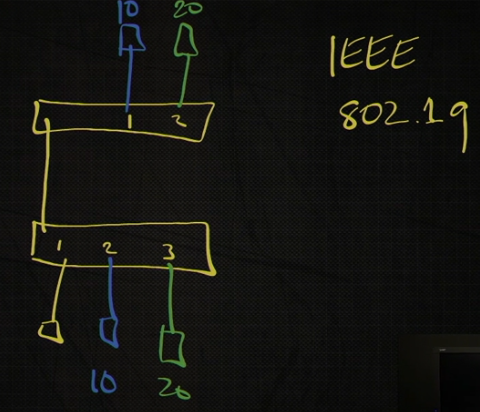 10 20
IEEE
802.1q
1 2
1 2 3
10 20